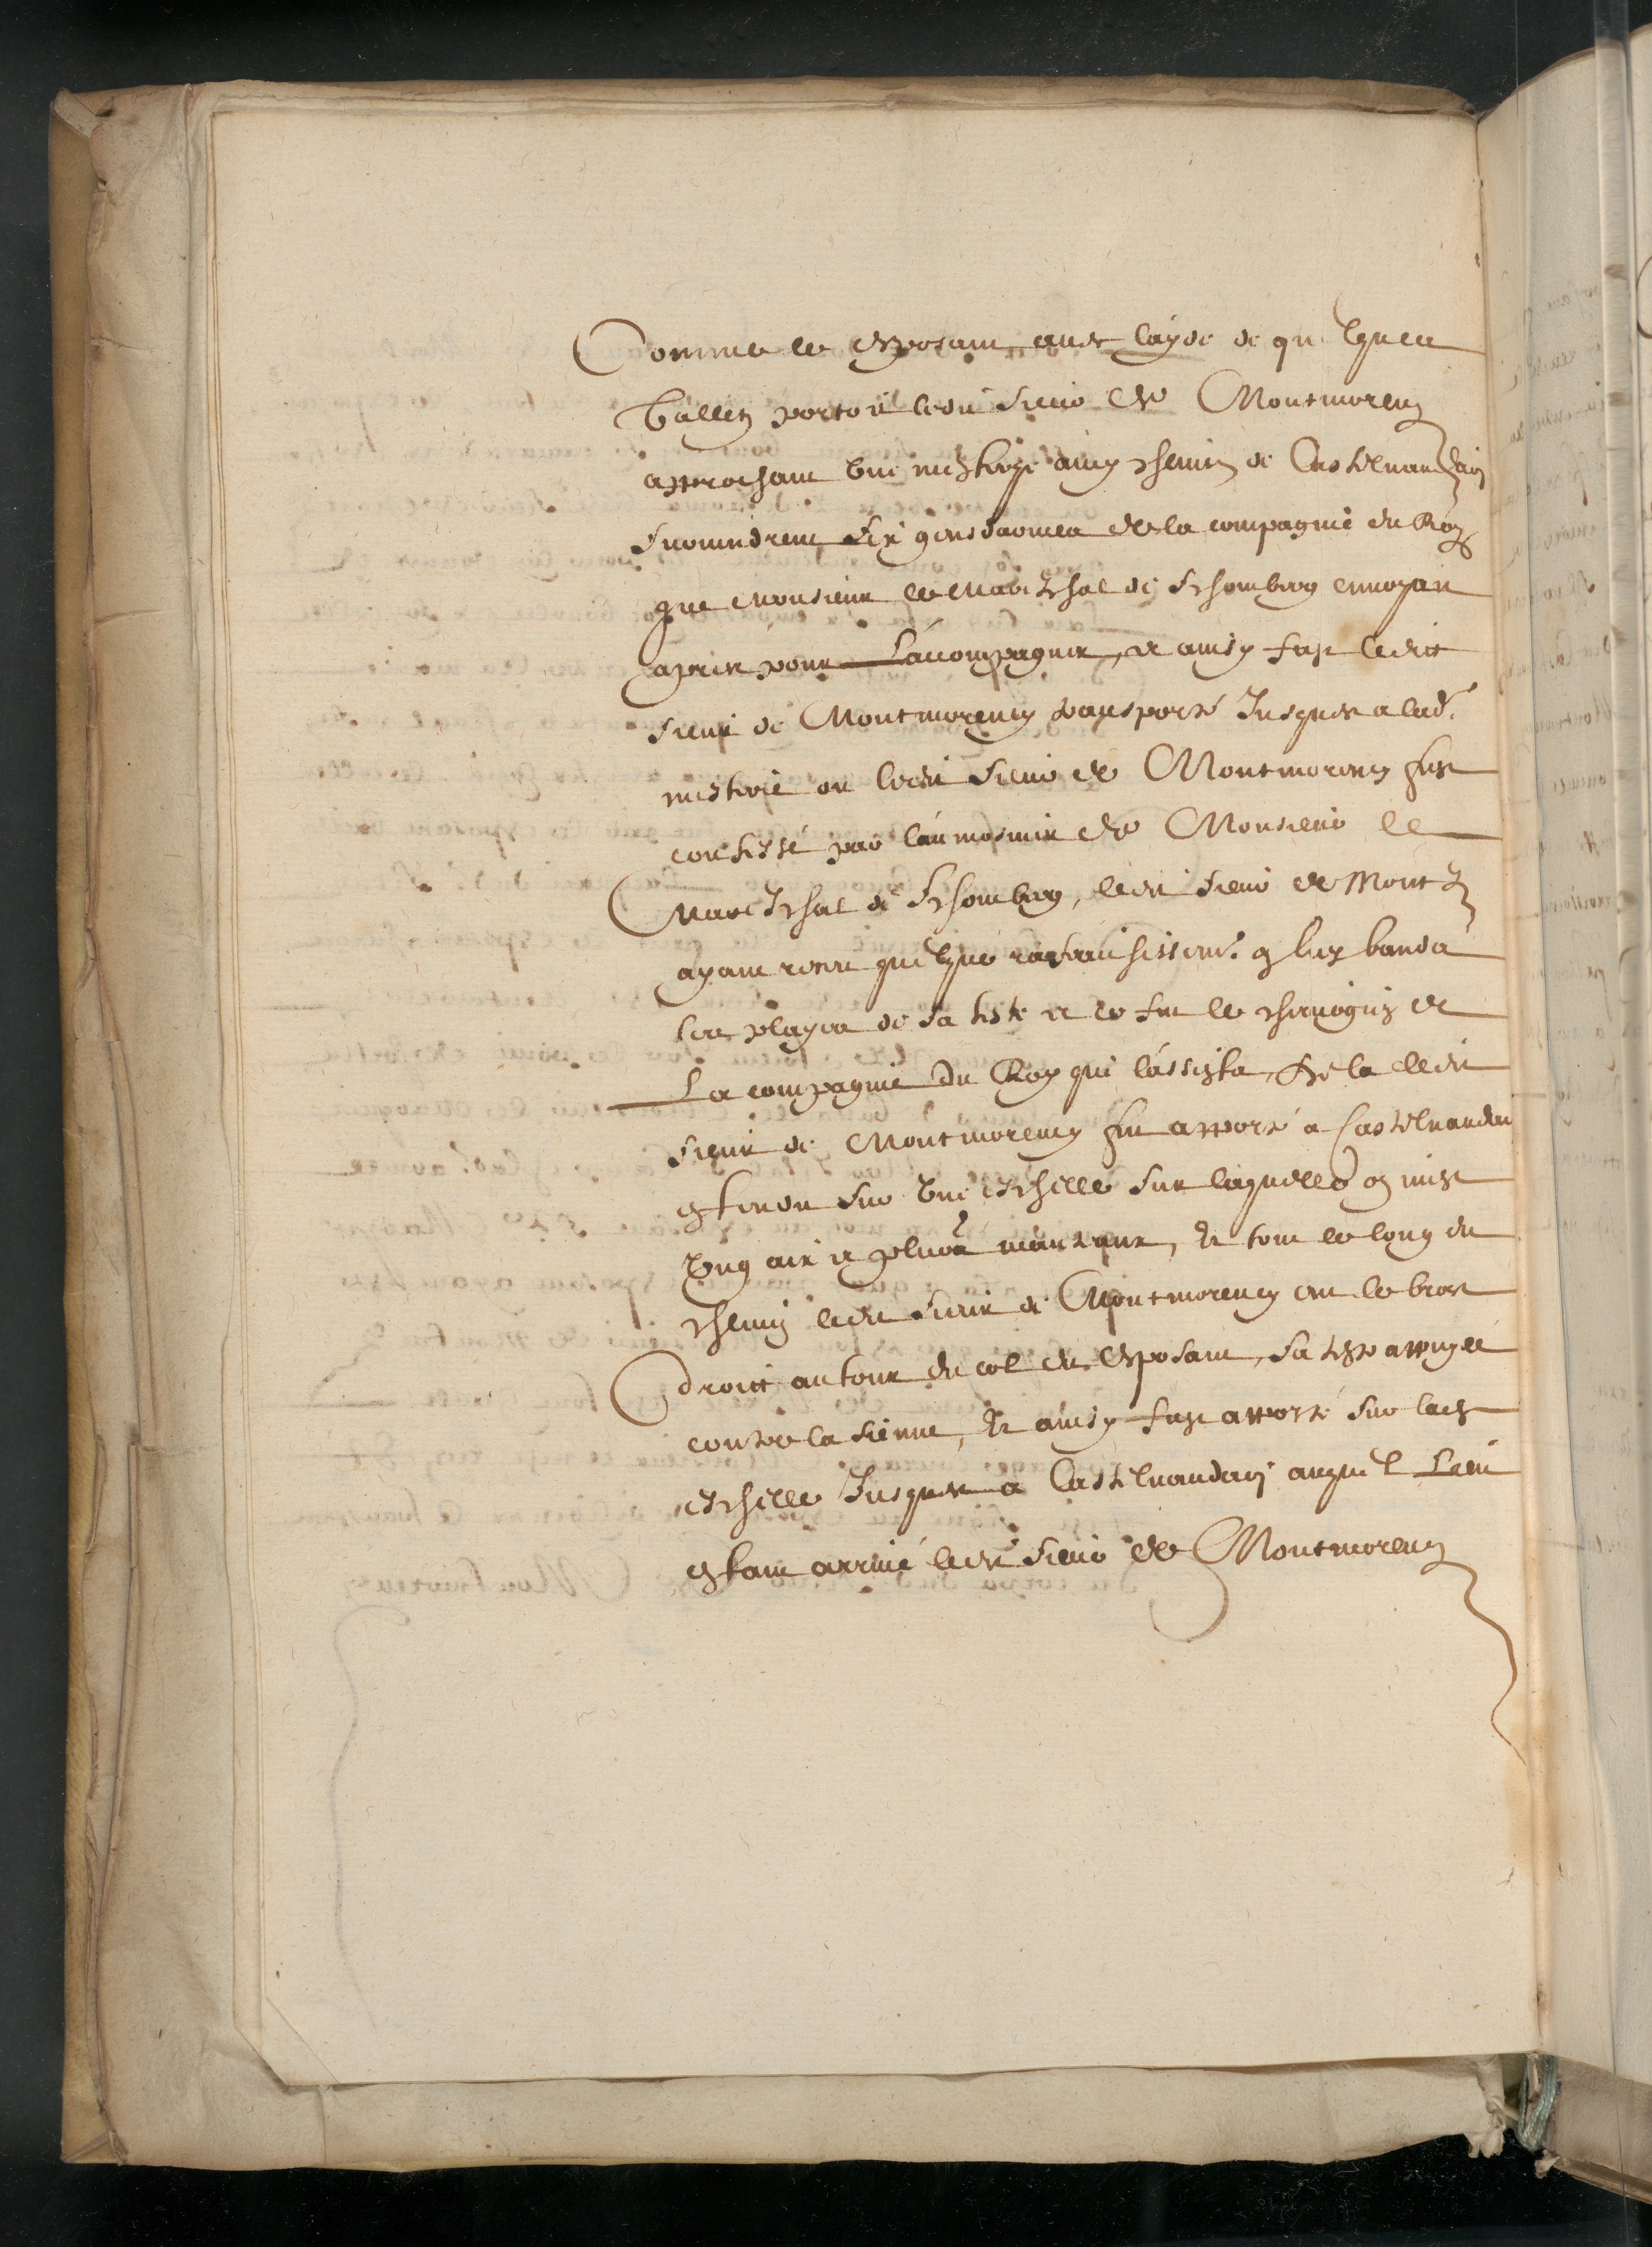 Comme le depposant avec l'ayde de quelques
valletz portoit ledit sieur de Montmorency
approchant une mestayrie au chemin de Castelnaudary
survindrent six gensdarmes de la compagnie du Roy
que Monsieur le Mareschal de Schomberg envoyoit
apres pour l'accompagner, et ainsy fust ledict
sieur de Montmorency transporté Jusques a lad.
mestrie ou ledit sieur de Montmorency fust
confessé par l'aumosnier de Monsieur le
Mareschal de Schomberg, ledit sieur de Mont
ayant receu quelque rafraichissem. on luy banda
les playes de sa teste et ce fut le chirurgien de
La compagnie du Roy qui l'assista, de la ledit
sieur de Montmorency fut apporté a Castelnaudary
estendu sur une eschelle sur laquelle on mist
ung aix et plus.rs manteaux, et tout le long du
chemin ledit sieur de Montmorency eut le bras
droict autour du col du depposant, sa teste appuyée
contre la sienne, et ainsy fust apporté sur lad.
eschelle Jusques a Castelnaudary auquel Lieu
estant arrivé ledit sieur de Montmorency